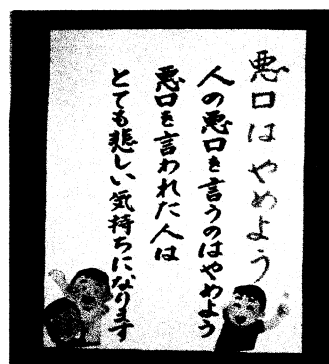 悪口はやめよう
人の悪口を言うのはやめよう
悪口を言われた人は
とても悲しい気持ちになります